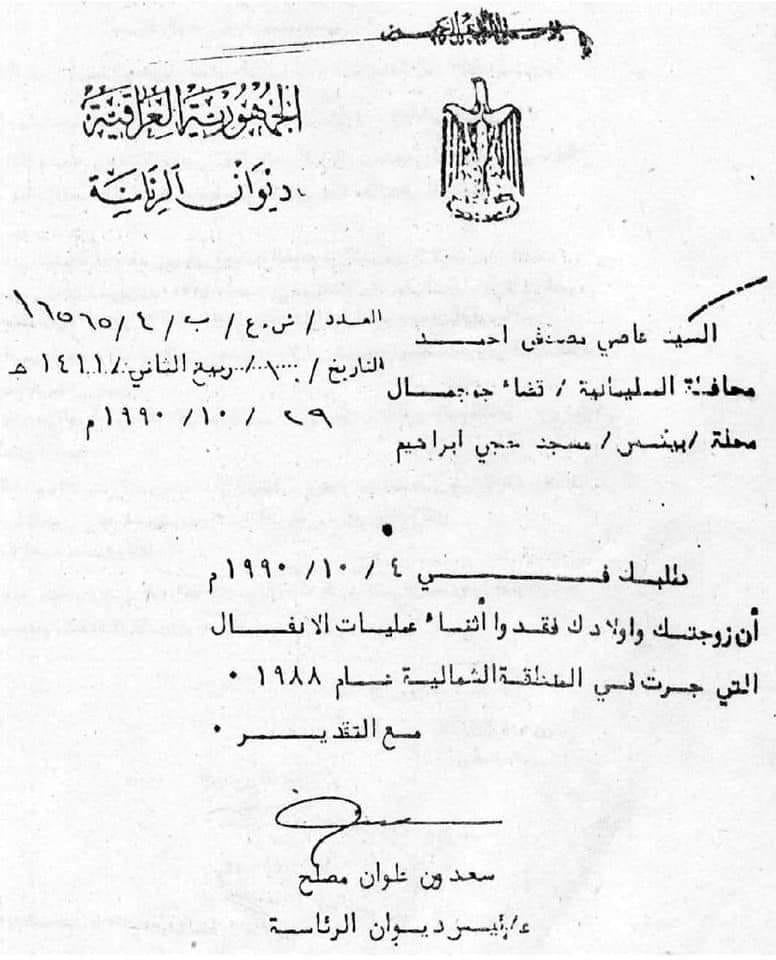 بسم الله الرحمن الرحيم
الجمهورية العراقية
ديوان الرئاسة
العدد / ش.ع / ب / ٤ / ١٦٥٦٥
التاريخ / ٠٠٠٠٠ / ربيع الثاني / ١٤١١ هـ
٢٩ / ١٠ / ١٩٩٠ م
السيد عاصي مصطفى احمد
محافظة السليمانية / قضاء جمجمال
محلة / بيغس / مسجد حجي ابراهيم
طلبك في ٤ / ١٠ / ١٩٩٠ م
أن زوجتك واولادك فقدوا أثناء عمليات الانفال
التي جرت في المنطقة الشمالية عام ١٩٨٨ .
مع التقدير .
سعدون علوان مصلح
ع/رئيس ديوان الرئاسة